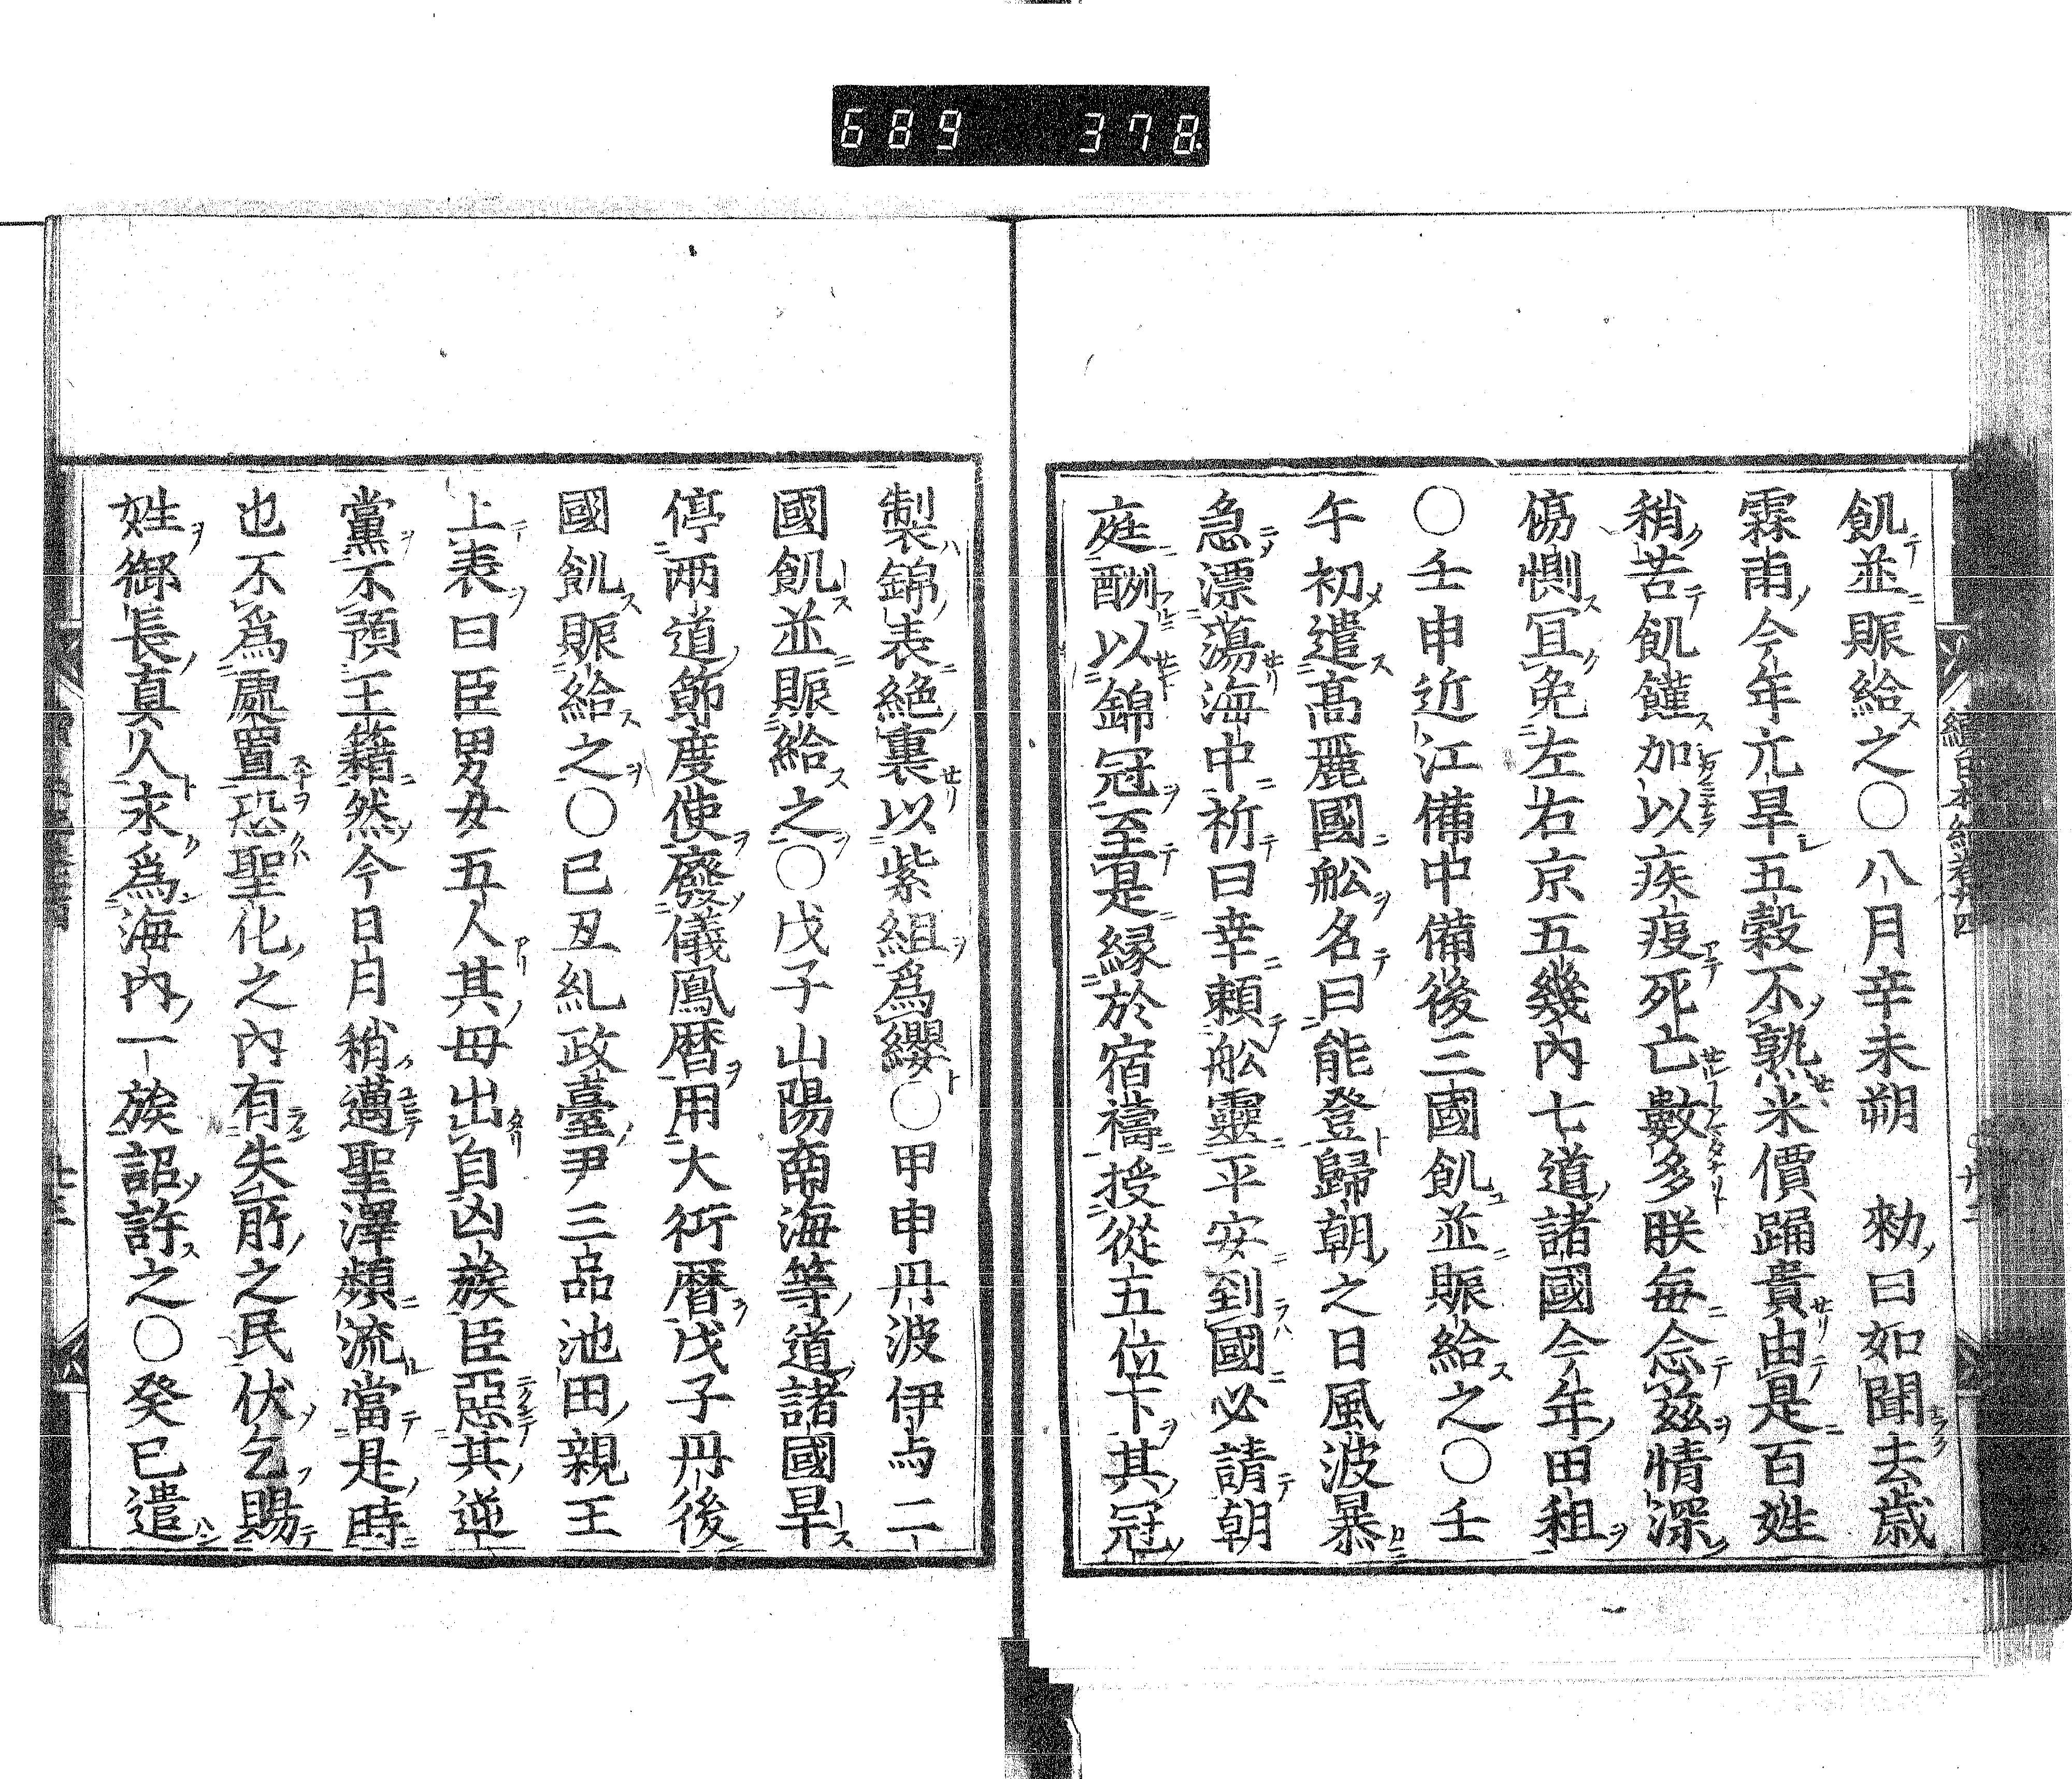 689 378
飢並賑給之〇八月辛未朔 勑曰如聞去歳
霖雨今年亢旱五穀不熟米價踊貴由是百姓
稍苦飢饉加以疾疫死亡數多朕毎念玆情深
傷惻宜免左右京五幾內七道諸國今年田租
〇壬申近江備中備後三國飢並賑給之〇壬
午初遣髙麗國舩名曰能登歸朝之日風波暴
急漂蕩海中祈曰幸頼舩靈平安到國必請朝
庭酬以錦冠至是縁於宿禱授從五位下其冠
製錦表絁裏以紫組爲纓〇甲申丹波伊与二
國飢並賑給之〇戊子山陽南海等道諸國旱
停兩道節度使廢儀鳳暦用大衍暦戊子丹後
國飢賑給之〇已丑糺政臺尹三品池田親王
上表曰臣男女五人其母出自凶族臣惡其逆
黨不預王籍然今日月稍邁聖澤頻流當是時
也不爲處置恐聖化之內有失所之民伏乞賜
姓御長真人永爲海內一族詔許之〇癸巳遣